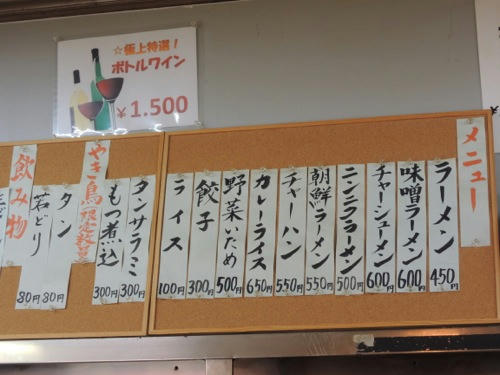 ☆極上特選!
ボトルワイン
¥1.500
メニュー
ラーメン 450円
味噌ラーメン 600円
チャーシューメン 600円
ニンニクラーメン 500円
朝鮮ラーメン 550円
チャーハン 550円
カレーライス 650円
野菜いため 500円
餃子 300円
ライス 100円
タンサラミ 300円
もつ煮込 300円
やき鳥 限定数量
タン 80円
若どり 80円
飲み物